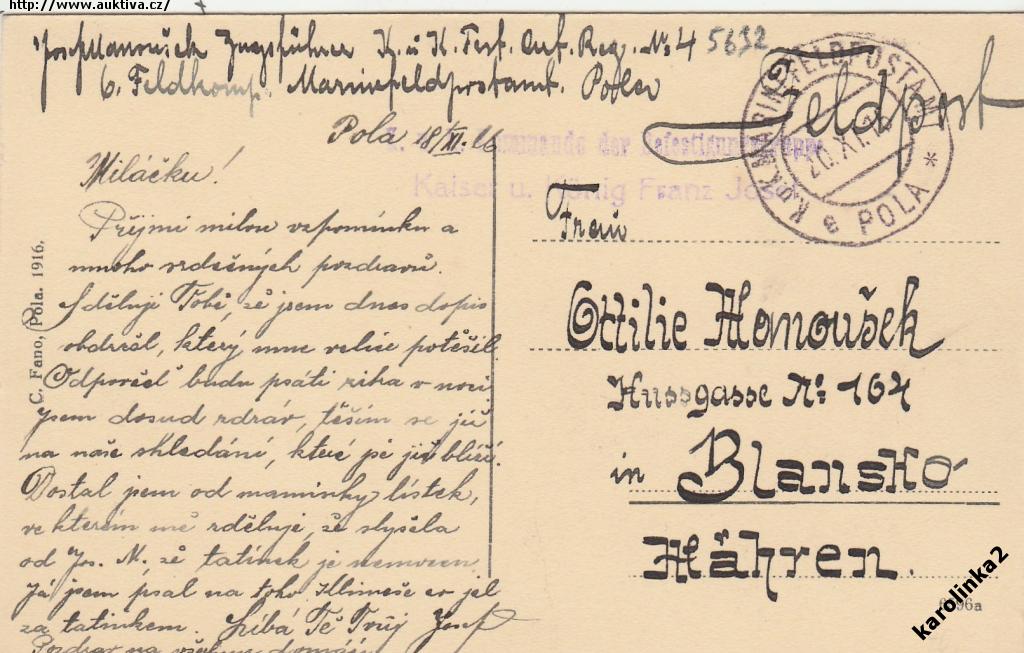 http://www.auktiva.cz/
Josef Manoušek Zugsführer K. u K. Fest. Art. Reg. No 4 5632
6. Feldkomp. Marinefeldpostamt. Pola
Feldpost
K.u.K. MARINEFELDPOSTAMT
20.XI.
e POLA *
Pola 18/XI 16
Kommando der Befestigungsgruppe
Kaiser u. König Franz Josef
Miláčku!
Přijmi milou vzpomínku a
mnoho srdečných pozdravů.
Sděluji Tobě, že jsem dnes dopis
obdržel, který mne velice potěšil.
Odpověď budu psáti v noci
jsem dosud zdráv, těším se již
na naše shledání, které se již blíží.
Dostal jsem od maminky lístek,
ve kterém mě sděluje, že slyšela
od Jos. N. že tatínek je nemocen.
Já jsem psal na toho Klimeše by jel
za tatínkem. Líbá Tě Tvůj Josef
Pozdrav na všechny domácí
C. Fano, Pola. 1916.
Frau
Ottilie Manoušek
Hussgasse No 164
in Blansko
Mähren.
karolinka2